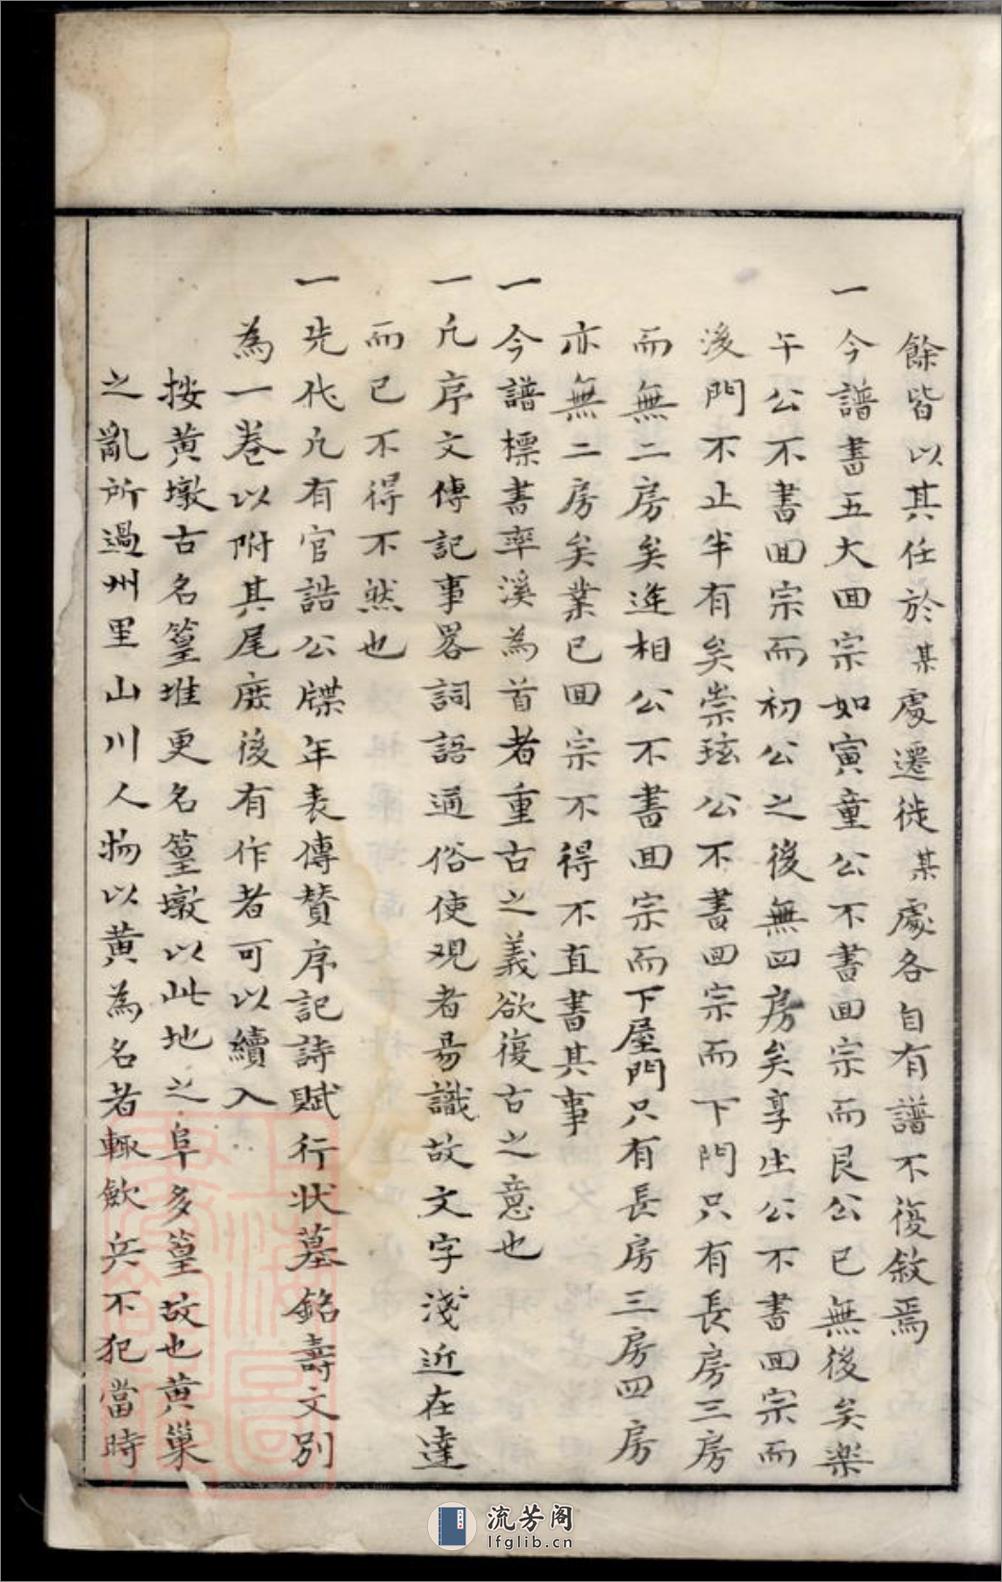 餘皆以其任於某處遷徙某處各自有譜不復敘焉
一今譜書五大回宗如寅童公不書回宗而艮公已無後矣樂
午公不書回宗而初公之後無四房矣享生公不書回宗而
後門不止半有矣崇玹公不書回宗而下門只有長房三房
而無二房矣迬相公不書回宗而下屋門只有長房三房四房
亦無二房矣業已回宗不得不直書其事
一今譜標書率溪為首者重古之義欲復古之意也
一凡序文傳記事畧詞語通俗使观者易識故文字淺近在達
而已不得不然也
一先代凡有官誥公牒年表傳贊序記詩賦行状墓銘壽文別
為一卷以附其尾庶後有作者可以續入
按黄墩古名篁堆更名篁墩以此地之阜多篁故也黄巢
之亂所過州里山川人物以黄為名者輙歛兵不犯當時
流芳阁
lfglib.cn